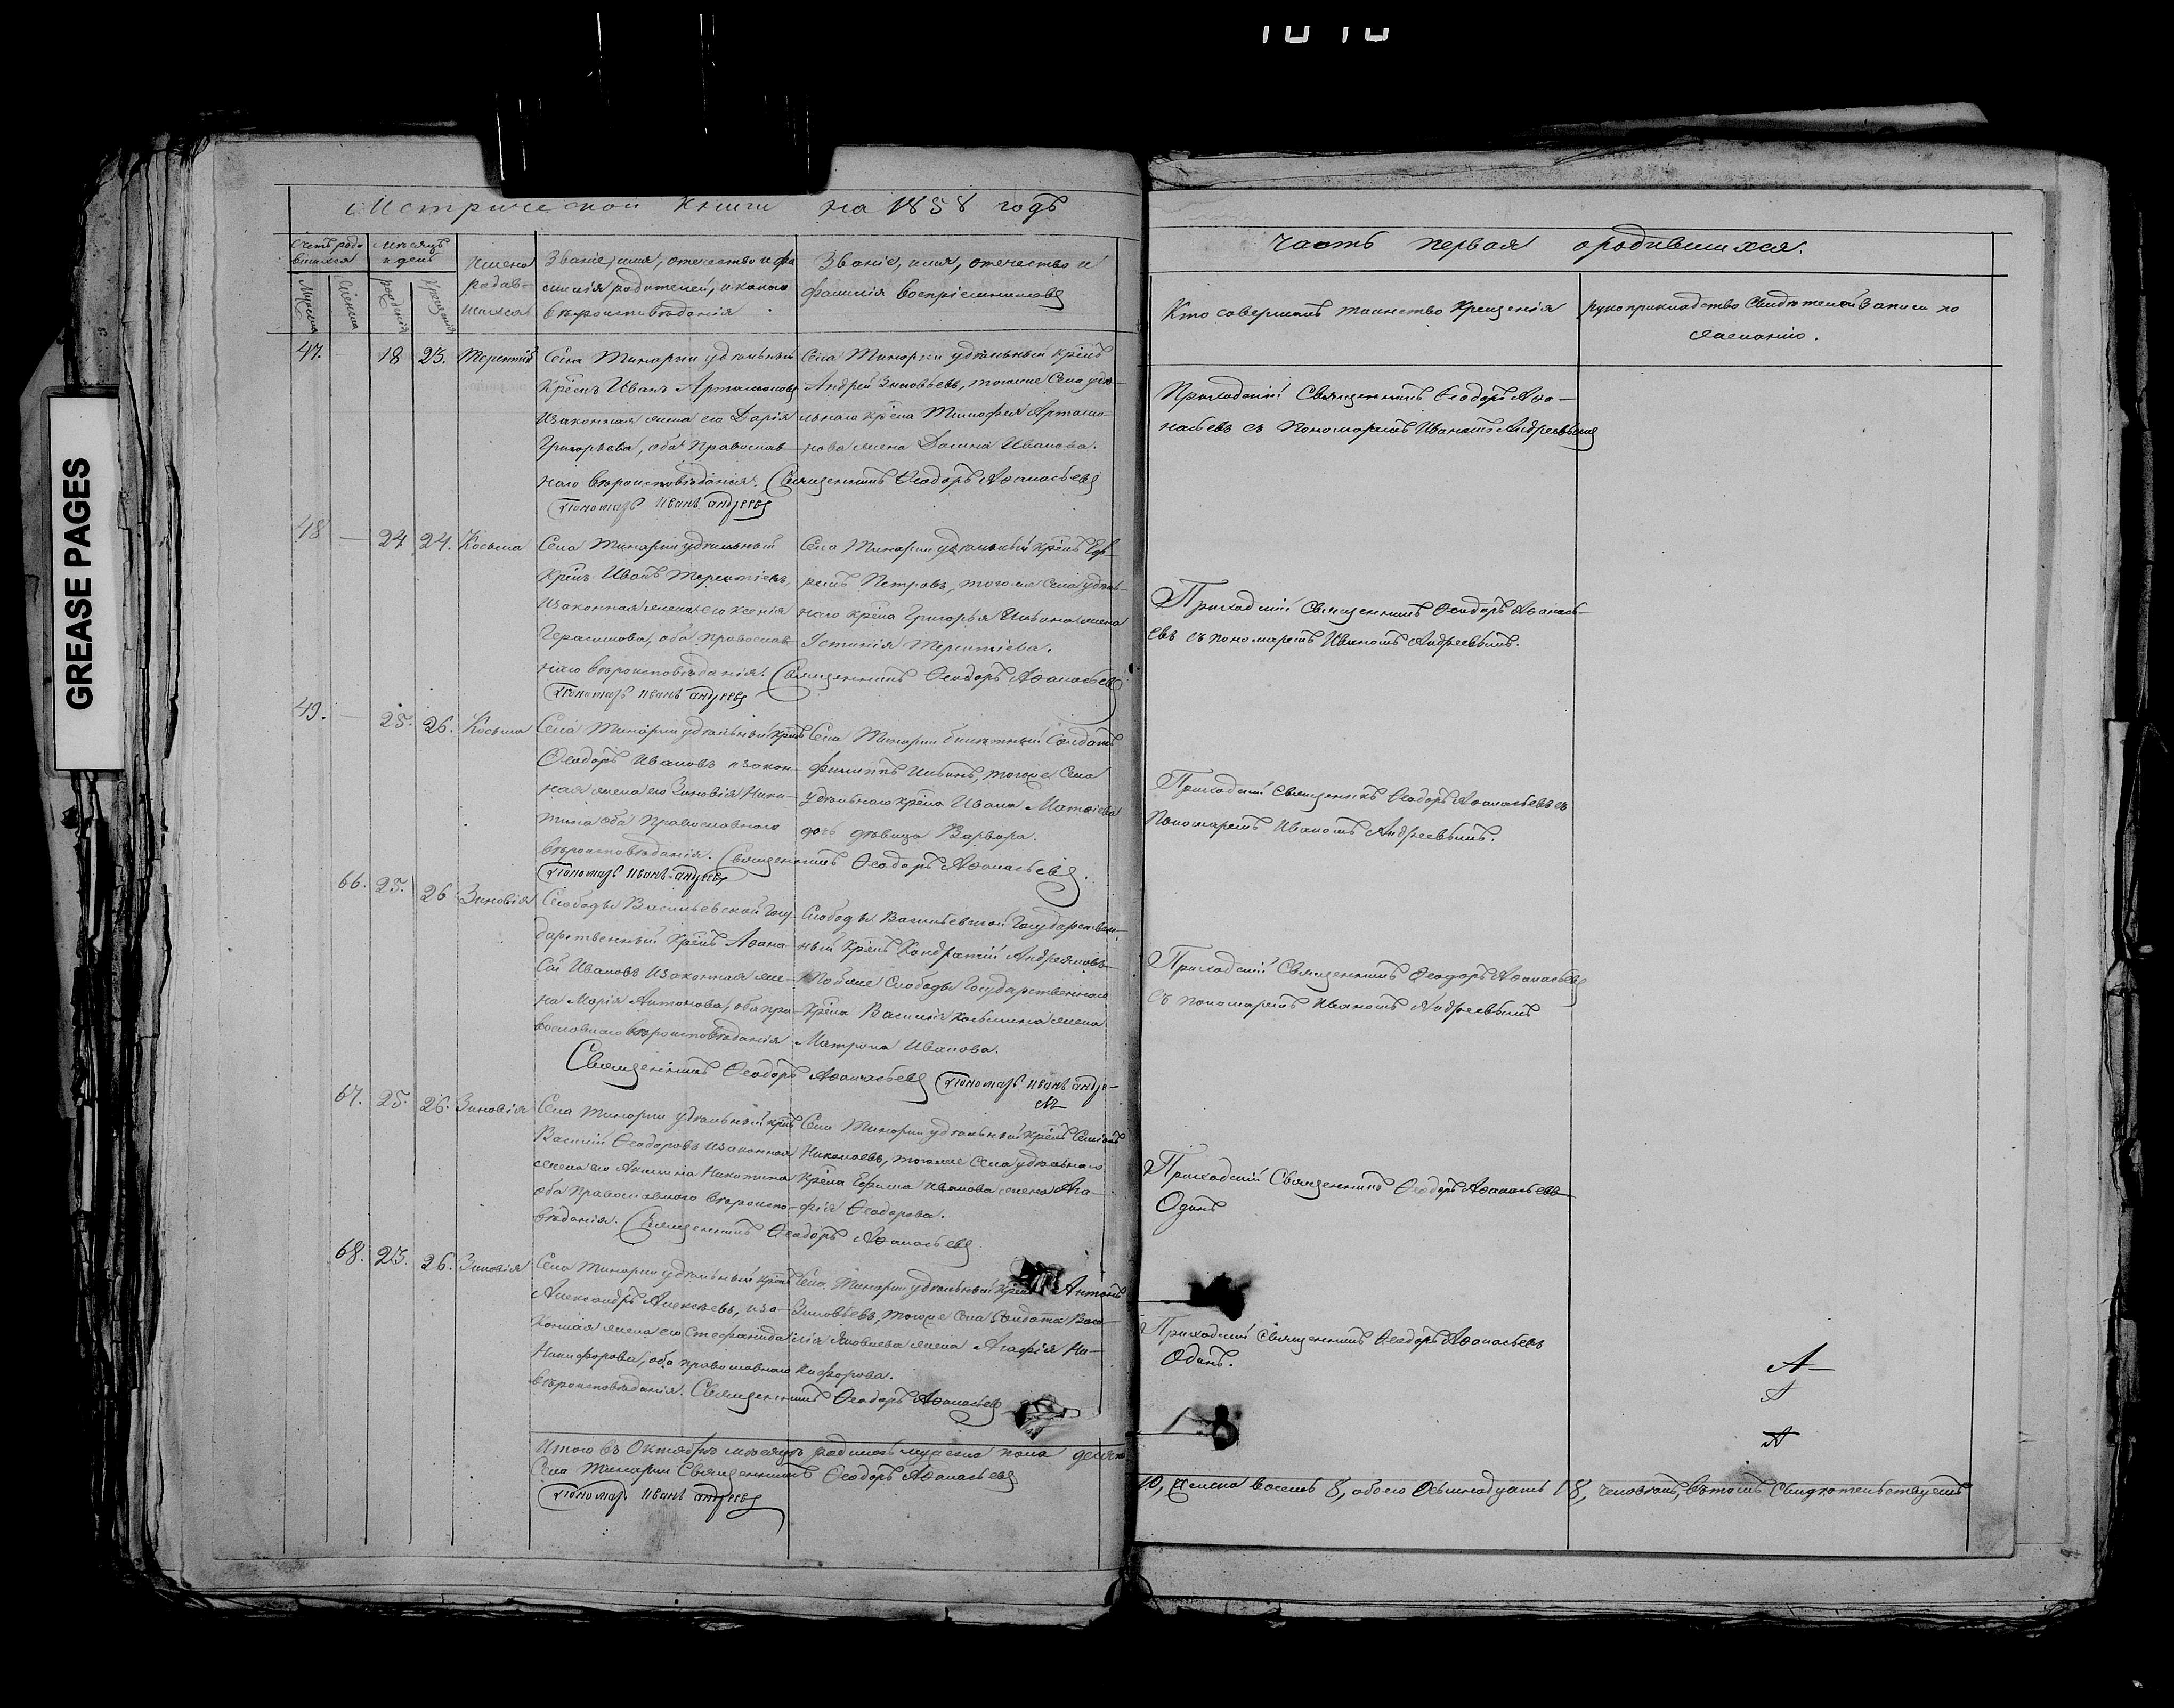 GREASE PAGES
Метрической книги на 1858 годъ
Часть первая о родившихся.
Счетъ роди
вшихся
Мѣсяцъ
и день
Мужеска
Женска
рожденія
Крещенія
Имена
родив-
шихся
Званіе, имя, отечество и фа
милія родителей, и какого
вѣроисповѣданія
Званіе, имя, отечество и
фамилія воспріемниковъ
Кто совершалъ таинство Крещенія
рукоприкладство свидѣтелей записи по
желанію.
47. 18 23. Терентій
Села Тинарки удѣльный
Крѣнъ Иванъ Артамоновъ
И законная жена его Дарія
Григорьева, оба православ-
наго вѣроисповѣданія. Священникъ Ѳеодоръ Аѳанасьевъ
Пономарь Иванъ Андреевъ
Села Тинарки удѣльный крѣнъ
Андрей Зиновьевъ, тогоже Села удѣ-
льнаго крѣна Тимофея Артамо-
нова жена Домна Иванова.
Приходскій Священникъ Ѳеодоръ Аѳа-
насьевъ съ Пономаремъ Иваномъ Андреевымъ
48 — 24 24. Косьма
Села Тинарки удѣльный
Крѣнъ Иванъ Терентіевъ,
И законная жена его Ксенія
Герасимова, оба православ-
наго вѣроисповѣданія. Священникъ Ѳеодоръ Аѳанасьевъ
Пономарь Иванъ Андреевъ
Села Тинарки удѣльный крѣнъ
Петровъ, тогоже Села удѣль-
наго крѣна Григорья Ильина жена
Устинія Терентіева.
Приходскій Священникъ Ѳеодоръ Аѳанась-
евъ съ пономаремъ Иваномъ Андреевымъ.
49. — 25. 26. Косьма
Села Тинарки удѣльный крѣнъ
Ѳеодоръ Ивановъ и закон-
ная жена его Зиновія Ники-
тина оба Православнаго
вѣроисповѣданія. Священникъ Ѳеодоръ Аѳанасьевъ.
Пономарь Иванъ Андреевъ
Села Тинарки билетный Солдатъ
Филиппъ Ильинъ, тогоже Села
удѣльнаго крѣна Ивана Матѳіева
дочь дѣвица Варвара.
Приходскій Священникъ Ѳеодоръ Аѳанасьевъ съ
Пономаремъ Иваномъ Андреевымъ.
66. 25. 26 Зиновія
Слободы Васильевской Госу-
дарственный Крѣнъ Аѳана-
сій Ивановъ и законная же-
на Марія Антонова, оба пра-
вославнаго вѣроисповѣданія
Священникъ Ѳеодоръ Аѳанасьевъ Пономарь Иванъ Андре-
евъ
Слободы Васильевской Государствен-
ный Крѣнъ Кондратій Андреяновъ
Тойже Слободы Государственнаго
крѣна Василія Косьмина жена
Матрона Иванова.
Приходскій Священникъ Ѳеодоръ Аѳанасьевъ
съ пономаремъ Иваномъ Андреевымъ
67. 25. 26. Зиновія
Села Тинарки удѣльный крѣнъ
Василій Ѳеодоровъ и законная
жена его Акилина Никитина
оба Православнаго вѣроиспо-
вѣданія. Священникъ Ѳеодоръ Аѳанасьевъ
Села Тинарки удѣльный крѣнъ Семіонъ
Николаевъ, тогоже Села удѣльнаго
крѣна Ефима Иванова жена Ага-
фія Ѳеодорова.
Приходскій Священникъ Ѳеодоръ Аѳанасьевъ
Одинъ
68. 23. 26. Зиновія
Села Тинарки удѣльный крѣнъ
Александръ Алексѣевъ, и за-
конная жена его Стефанида
Никифорова, оба православнаго
вѣроисповѣданія. Священникъ Ѳеодоръ Аѳанасьевъ
Села Тинарки удѣльный крѣнъ Антонъ
Зиновьевъ, тогоже Села Солдата Васи-
лія Яковлева жена Агафія Ни-
кифорова.
Приходскій Священникъ Ѳеодоръ Аѳанасьевъ
Одинъ.
Итого въ Октябрѣ мѣсяцѣ родилось мужеска пола десять
10, женска восемь 8, обоего Осьмнадцать 18, человѣкъ, въ томъ Свидѣтельствуемъ
Села Тинарки Священникъ Ѳеодоръ Аѳанасьевъ
Пономарь Иванъ Андреевъ